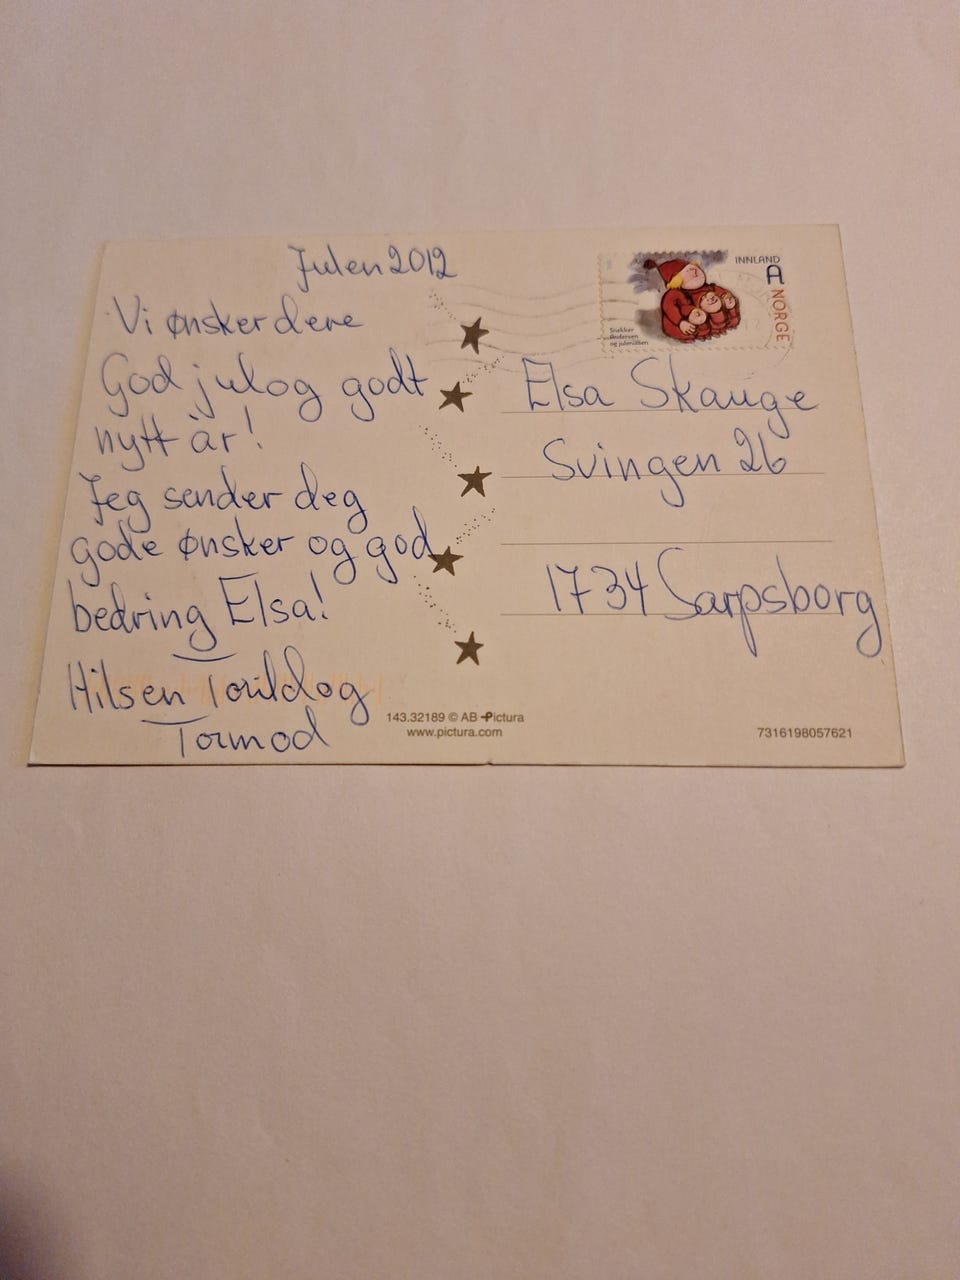 Julen 2012
Vi ønsker dere
God jul og godt
nytt år!
Jeg sender deg
gode ønsker og god
bedring Elsa!
Hilsen Torild og
Tormod
INNLAND
A
NORGE
Snekker
Andersen
og julenissen
Elsa Skauge
Svingen 26
1734 Sarpsborg
143.32189 © AB Pictura
www.pictura.com
7316198057621